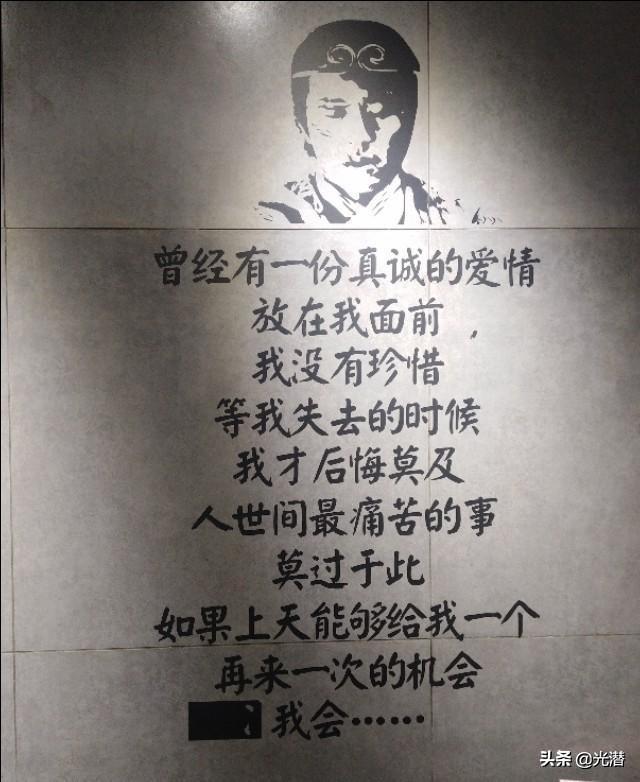 曾经有一份真诚的爱情
放在我面前，
我没有珍惜
等我失去的时候
我才后悔莫及
人世间最痛苦的事
莫过于此
如果上天能够给我一个
再来一次的机会
我会……
头条 @光潜